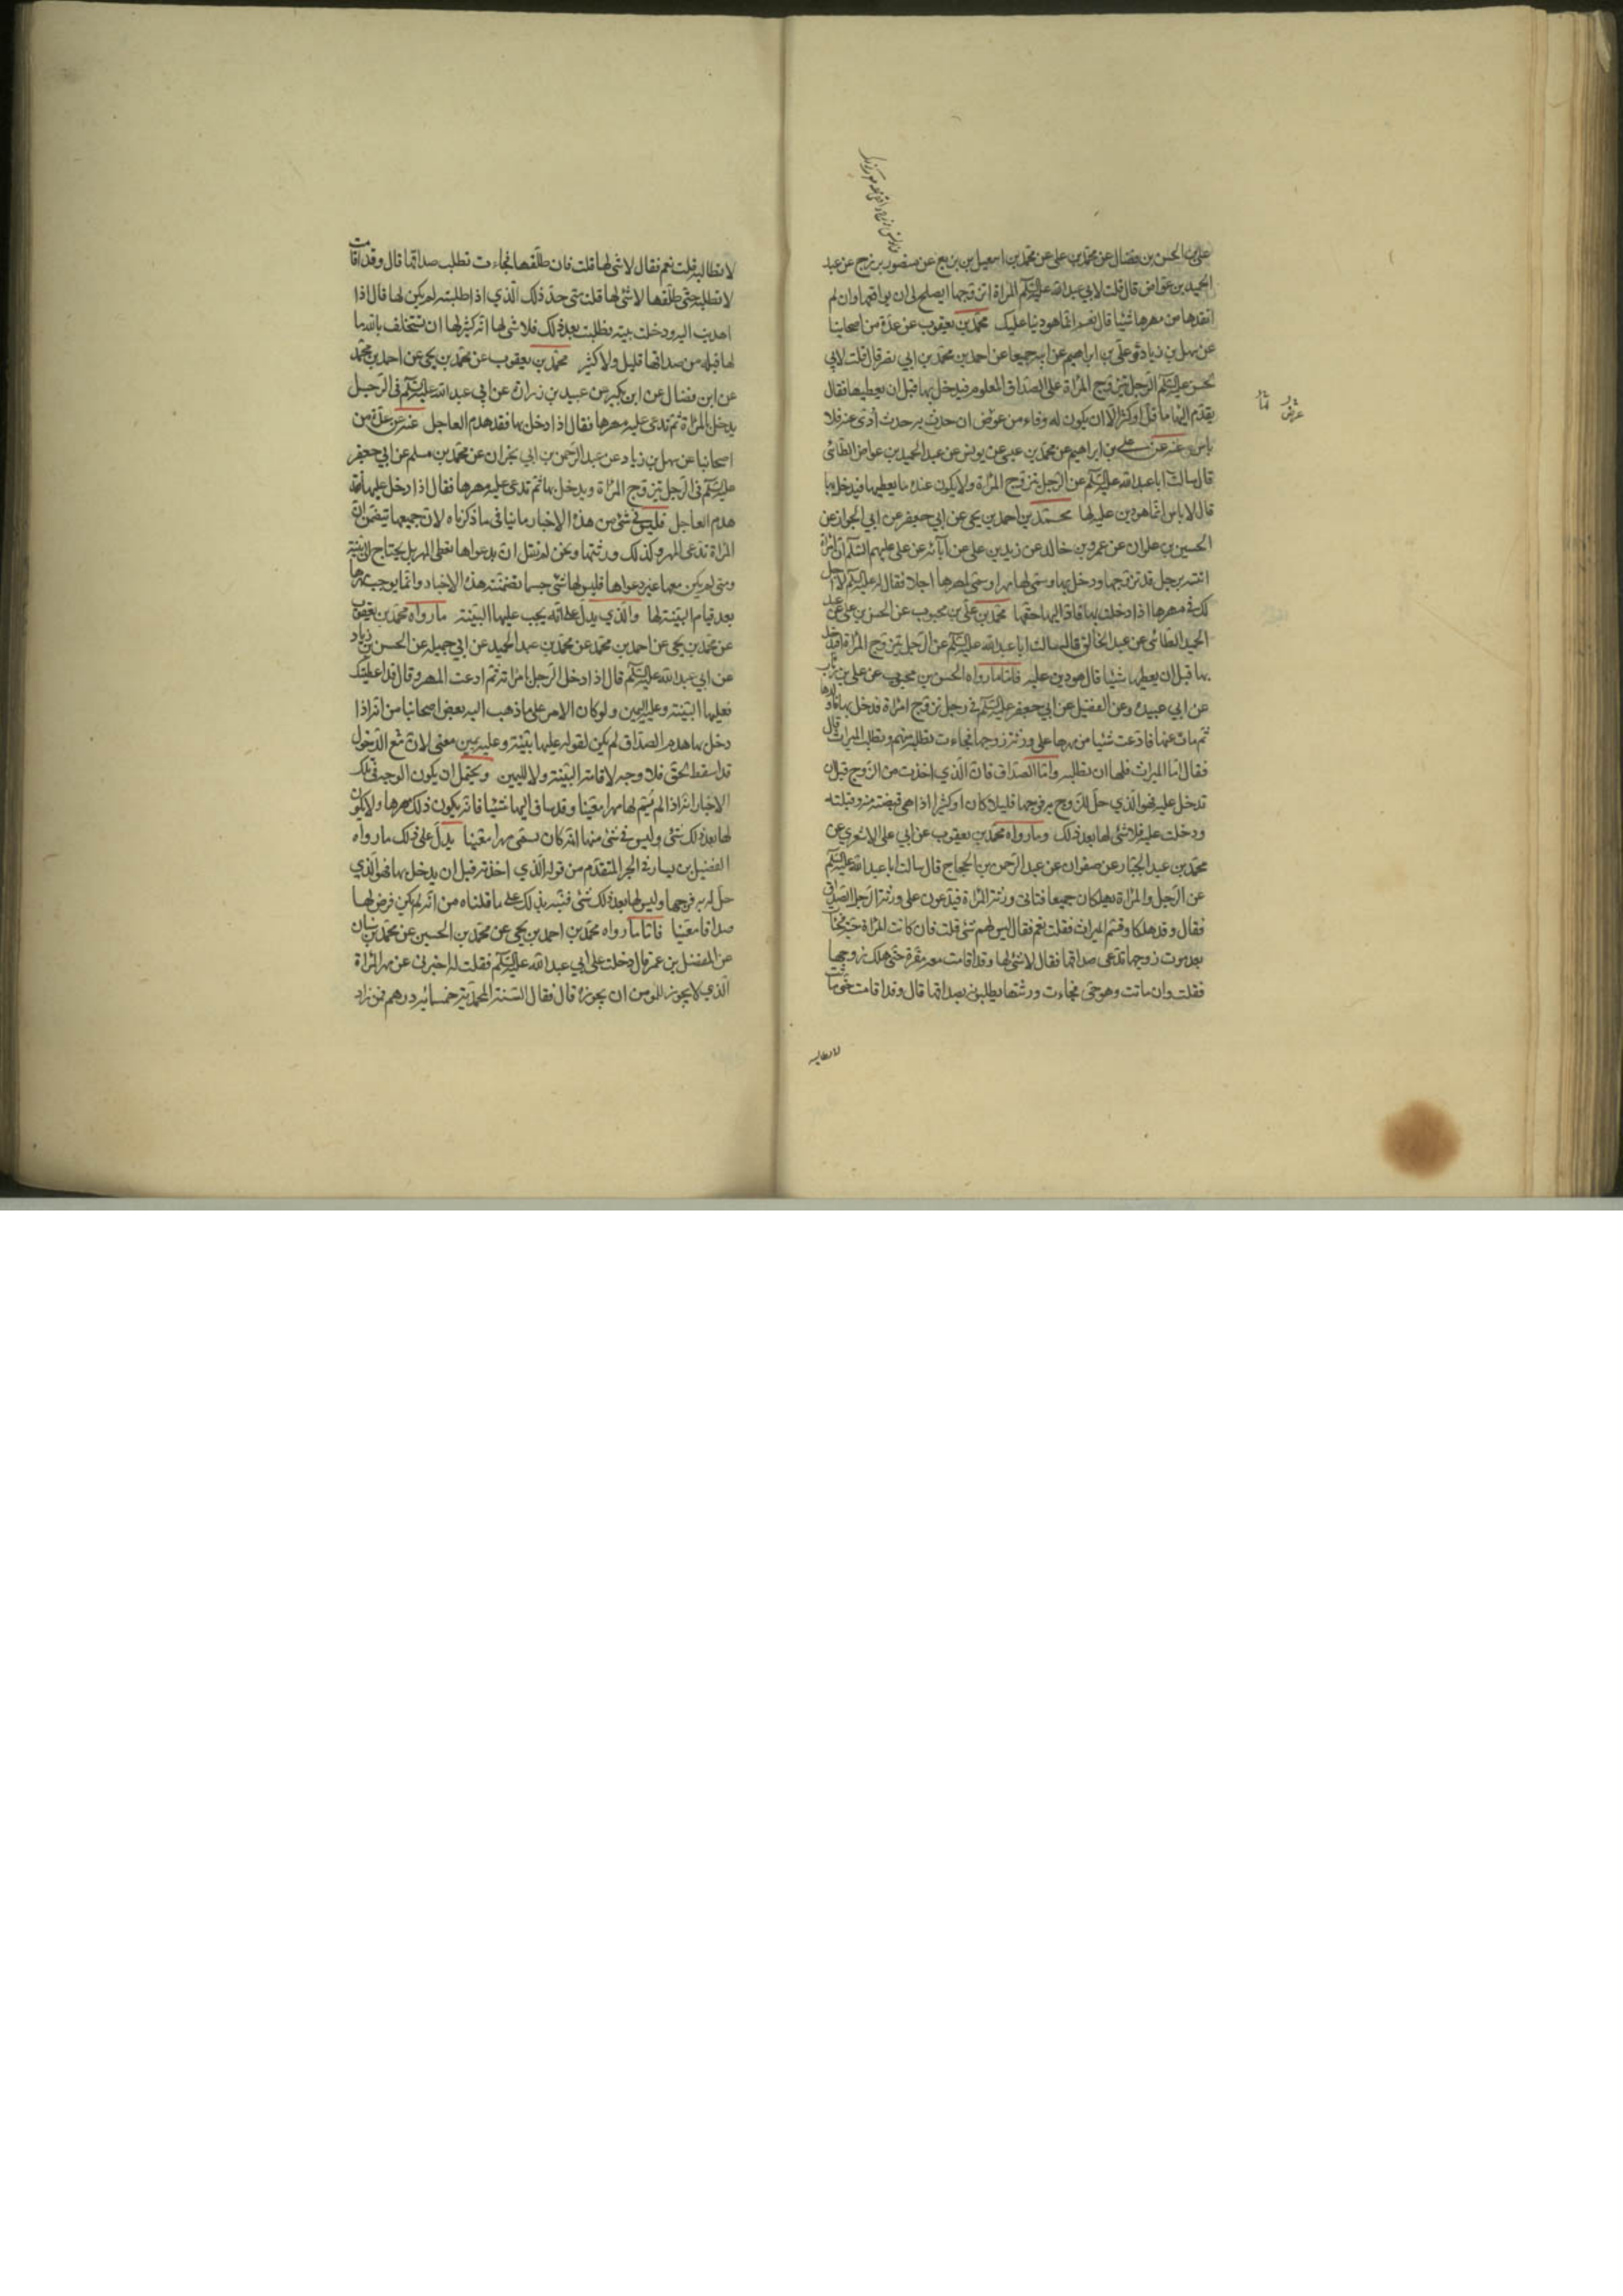 علي بن الحسن بن فضال عن محمد بن علي عن محمد بن اسمعيل بن بزيع عن منصور بن بزرج عن عبد
الحميد بن عواض قال قلت لابي عبد الله عليه السلم المراة اتزوجها ايصلح لي ان يواقعها وان لم
انقدها من مهرها شيئا قال نعم انما هو دينا عليك محمد بن يعقوب عن عدة من اصحابنا
عن سهل بن زياد وعلي بن ابراهيم عن ابيه جميعا عن احمد بن محمد بن ابي نصر قال قلت لابي
الحسن عليه السلم الرجل يتزوج المراة على الصداق المعلوم فيدخل بها قبل ان يعطيها فقال
يقدم اليها ما قل او كثر الا ان يكون له وفاء من عوض ان حدث به حدث ادى عنه فلا
باس عنه عن علي بن ابراهيم عن محمد بن عيسى عن يونس عن عبد الحميد بن عواض الطائي
قال سالت ابا عبد الله عليه السلم عن الرجل يتزوج المراة ولا يكون عنده ما يعطيها فيدخل بها
قال لا باس انما هو دين عليه لها محمد بن احمد بن يحيى عن ابي جعفر عن ابي الجوزا عن
الحسين بن علوان عن عمرو بن خالد عن زيد بن علي عن آبائه عن علي عليهم السلم ان امراة
اتته برجل قد تزوجها ودخل بها وسمى لها مهرا وسمى لمهرها اجلا فقال له عليه السلم لا اجل
لك في مهرها اذا دخلت بها فاد اليها حقها محمد بن علي بن محبوب عن الحسن بن علي عن عبد
الحميد الطائي عن عبد الخالق قال سالت ابا عبد الله عليه السلم عن الرجل يتزوج المراة فيدخل
بها قبل ان يعطيها شيئا قال هو دين عليه فاما ما رواه الحسن بن محبوب عن علي بن رئاب
عن ابي عبيدة وعن الفضيل عن ابي جعفر عليه السلم في رجل تزوج امراة فدخل بها فاولدها
ثم مات عنها فادعت شيئا من مهرها على ورثة زوجها فجاءت تطلبه منهم وتطلب الميراث قال
فقال اما الميراث فلها ان تطلبه واما الصداق فان الذي اخذت من الزوج قبل ان
تدخل عليه فهو الذي حل للزوج به فرجها قليلا كان او كثيرا اذا هي قبضته منه وقبلته
ودخلت عليه فلا شئ لها بعد ذلك وما رواه محمد بن يعقوب عن ابي علي الاشعري عن
محمد بن عبد الجبار عن صفوان عن عبد الرحمن بن الحجاج قال سالت ابا عبد الله عليه السلم
عن الرجل والمراة يهلكان جميعا فتاتي ورثة المراة فيدعون على ورثة الرجل الصداق
فقال وقد هلكا وقسم الميراث فقلت نعم فقال ليس لهم شئ قلت فان كانت المراة حية فجاءت
بعد موت زوجها تدعى صداقها فقال لا شئ لها وقد اقامت معه مقرة حتى هلك زوجها
فقلت وان ماتت وهو حي فجاءت ورثتها يطلبونه بصداقها قال وقد اقامت حتى ماتت
لا تطالبه
لا تطالبه قلت نعم فقال لا شئ لها قلت فان طلقها فجاءت تطلب صداقها قال وقد اقامت
لا تطلبه حتى طلقها لا شئ لها قلت متى حد ذلك الذي اذا طلبته لم يكن لها قال اذا
اهديت اليه ودخلت بيته وطلبت بعد ذلك فلا شئ لها انه كثير لها ان تستحلف بالله ما
لها قبله من صداقها قليل ولا كثير محمد بن يعقوب عن محمد بن يحيى عن احمد بن محمد
عن ابن فضال عن ابن بكير عن عبيد بن زرارة عن ابي عبد الله عليه السلم في الرجل
يدخل بالمراة ثم تدعى عليه مهرها فقال اذا دخل بها فقد هدم العاجل عنه عن عدة من
اصحابنا عن سهل بن زياد عن عبد الرحمن بن ابي نجران عن محمد بن مسلم عن ابي جعفر
عليه السلم في الرجل يتزوج المراة ويدخل بها ثم تدعى عليه مهرها فقال اذا دخل عليها فقد
هدم العاجل فليس في شئ من هذه الاخبار ما ينافي ما ذكرناه لان جميعها يتضمن ان
المراة تدعى المهر وكذلك ورثتها ونحن لم نقل ان بدعواها تعطى المهر بل يحتاج الى بينة
ومتى لم يكن معها غير دعواها فليس لها شئ حسب ما تضمنته هذه الاخبار وانما يوجب مهرها
بعد قيام البينة لها والذي يدل على انه يجب عليها البينة ما رواه محمد بن يعقوب
عن محمد بن يحيى عن احمد بن محمد عن محمد بن عبد الحميد عن ابي جميلة عن الحسن بن زياد
عن ابي عبد الله عليه السلم قال اذا دخل الرجل بامراته ثم ادعت المهر وقال قد اعطيتك
فعليها البينة وعليه اليمين ولو كان الامر على ما ذهب اليه بعض اصحابنا من انه اذا
دخل بها هدم الصداق لم يكن لقوله عليها بينة وعليه يمين معنى لان مع الدخول
قد اسقط الحق فلا وجه لاقامة البينة ولا لليمين ويحتمل ان يكون الوجه في تلك
الاخبار انه اذا لم يسم لها مهرا معينا وقد ساق اليها شيئا فانه يكون ذلك مهرها ولا يكون
لها بعد ذلك شئ وليس في شئ منها انه كان سمى مهرا معينا يدل على ذلك ما رواه
الفضيل بن يسار في الخبر المتقدم من قوله الذي اخذته قبل ان يدخل بها فهو الذي
حل له به فرجها وليس لها بعد ذلك شئ فنبه بذلك على ما قلناه من انه لم يكن فرض لها
صداقا معينا فاما ما رواه محمد بن احمد بن يحيى عن محمد بن الحسين عن محمد بن سنان
عن المفضل بن عمر قال دخلت على ابي عبد الله عليه السلم فقلت له اخبرني عن مهر المراة
الذي لا يجوز للمومن ان يجوزه قال فقال السنة المحمدية خمسمائة درهم فمن زاد